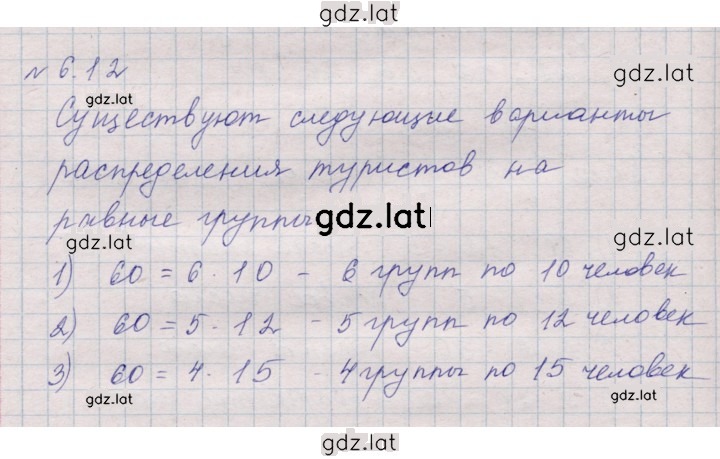 gdz.lat
№ 6.12
gdz.lat
gdz.lat
Существуют следующие варианты
распределения туристов на
равные группы
gdz.lat
gdz.lat
gdz.lat
1) 60 = 6 · 10 - 6 групп по 10 человек
2) 60 = 5 · 12 - 5 групп по 12 человек
3) 60 = 4 · 15 - 4 группы по 15 человек
gdz.lat
gdz.lat
gdz.lat